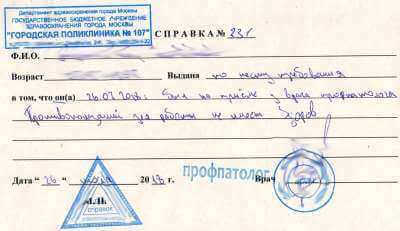 Департамент здравоохранения города Москвы
ГОСУДАРСТВЕННОЕ БЮДЖЕТНОЕ УЧРЕЖДЕНИЕ
ЗДРАВООХРАНЕНИЯ ГОРОДА МОСКВЫ
"ГОРОДСКАЯ ПОЛИКЛИНИКА № 107"
СПРАВКА № 231
Ф.И.О.
Возраст Выдана по месту требования
в том, что он(а) на приёме у врача профпатолога
Противопоказаний для работы не имеет Здоров
профпатолог
Дата "26" 2018 г. Врач
М.П.